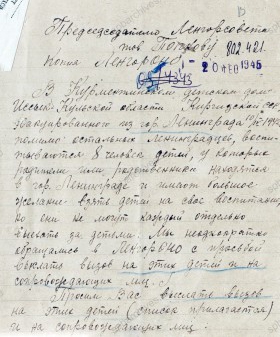 Председателю Ленгорсовета
тов. Попкову 802421.
Копия ЛенгорОНО
20 1945
В Курментинском детском доме
Иссык-Кульской области Киргизской ССР
эвакуированного из гор. Ленинграда
помимо остальных ленинградцев, воспи-
тываются 8 человек детей, у которых
родители или родственники находятся
в гор. Ленинграде и имеют большое
желание взять детей на свое воспитание,
но они не могут каждый отдельно
выехать за детьми. Мы неоднократно
обращались в ЛенгорОНО с просьбой
выслать вызов на этих детей и на
сопровождающих лиц.
Просим Вас выслать вызов
на этих детей (список прилагается)
и на сопровождающих лиц.